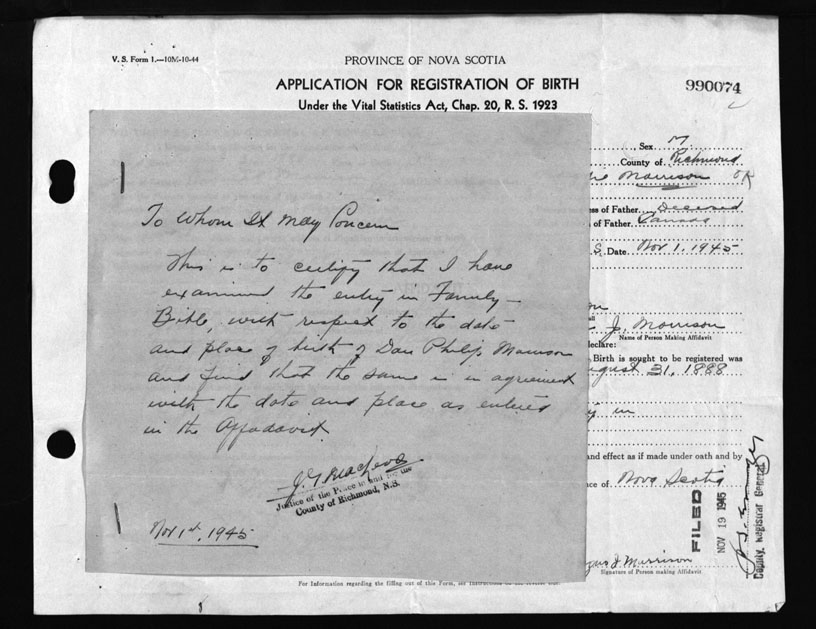 V. S. Form 1.—10M-10-44
PROVINCE OF NOVA SCOTIA
APPLICATION FOR REGISTRATION OF BIRTH
Under the Vital Statistics Act, Chap. 20, R. S. 1923
990074
To Whom It May Concern
This is to certify that I have
examined the entry in Family
Bible, with respect to the date
and place of birth of Dan Philip Morrison
and find that the same is in agreement
with the date and place as entered
in the Affadavit.
Justice of the Peace in and for the
County of Richmond, N.S.
Nov 1st, 1945
Sex M
County of Richmond
Morrison OR
ess of Father Deceased
of Father Canada
S. Date Nov 1, 1945
J. Morrison
Name of Person Making Affidavit
declare:
Birth is sought to be registered was
ugust 31, 1888
in
and effect as if made under oath and by
ce of Nova Scotia
FILED
NOV 19 1945
Deputy Registrar General
J Morrison
Signature of Person making Affidavit
For Information regarding the filling out of this Form, see Instructions